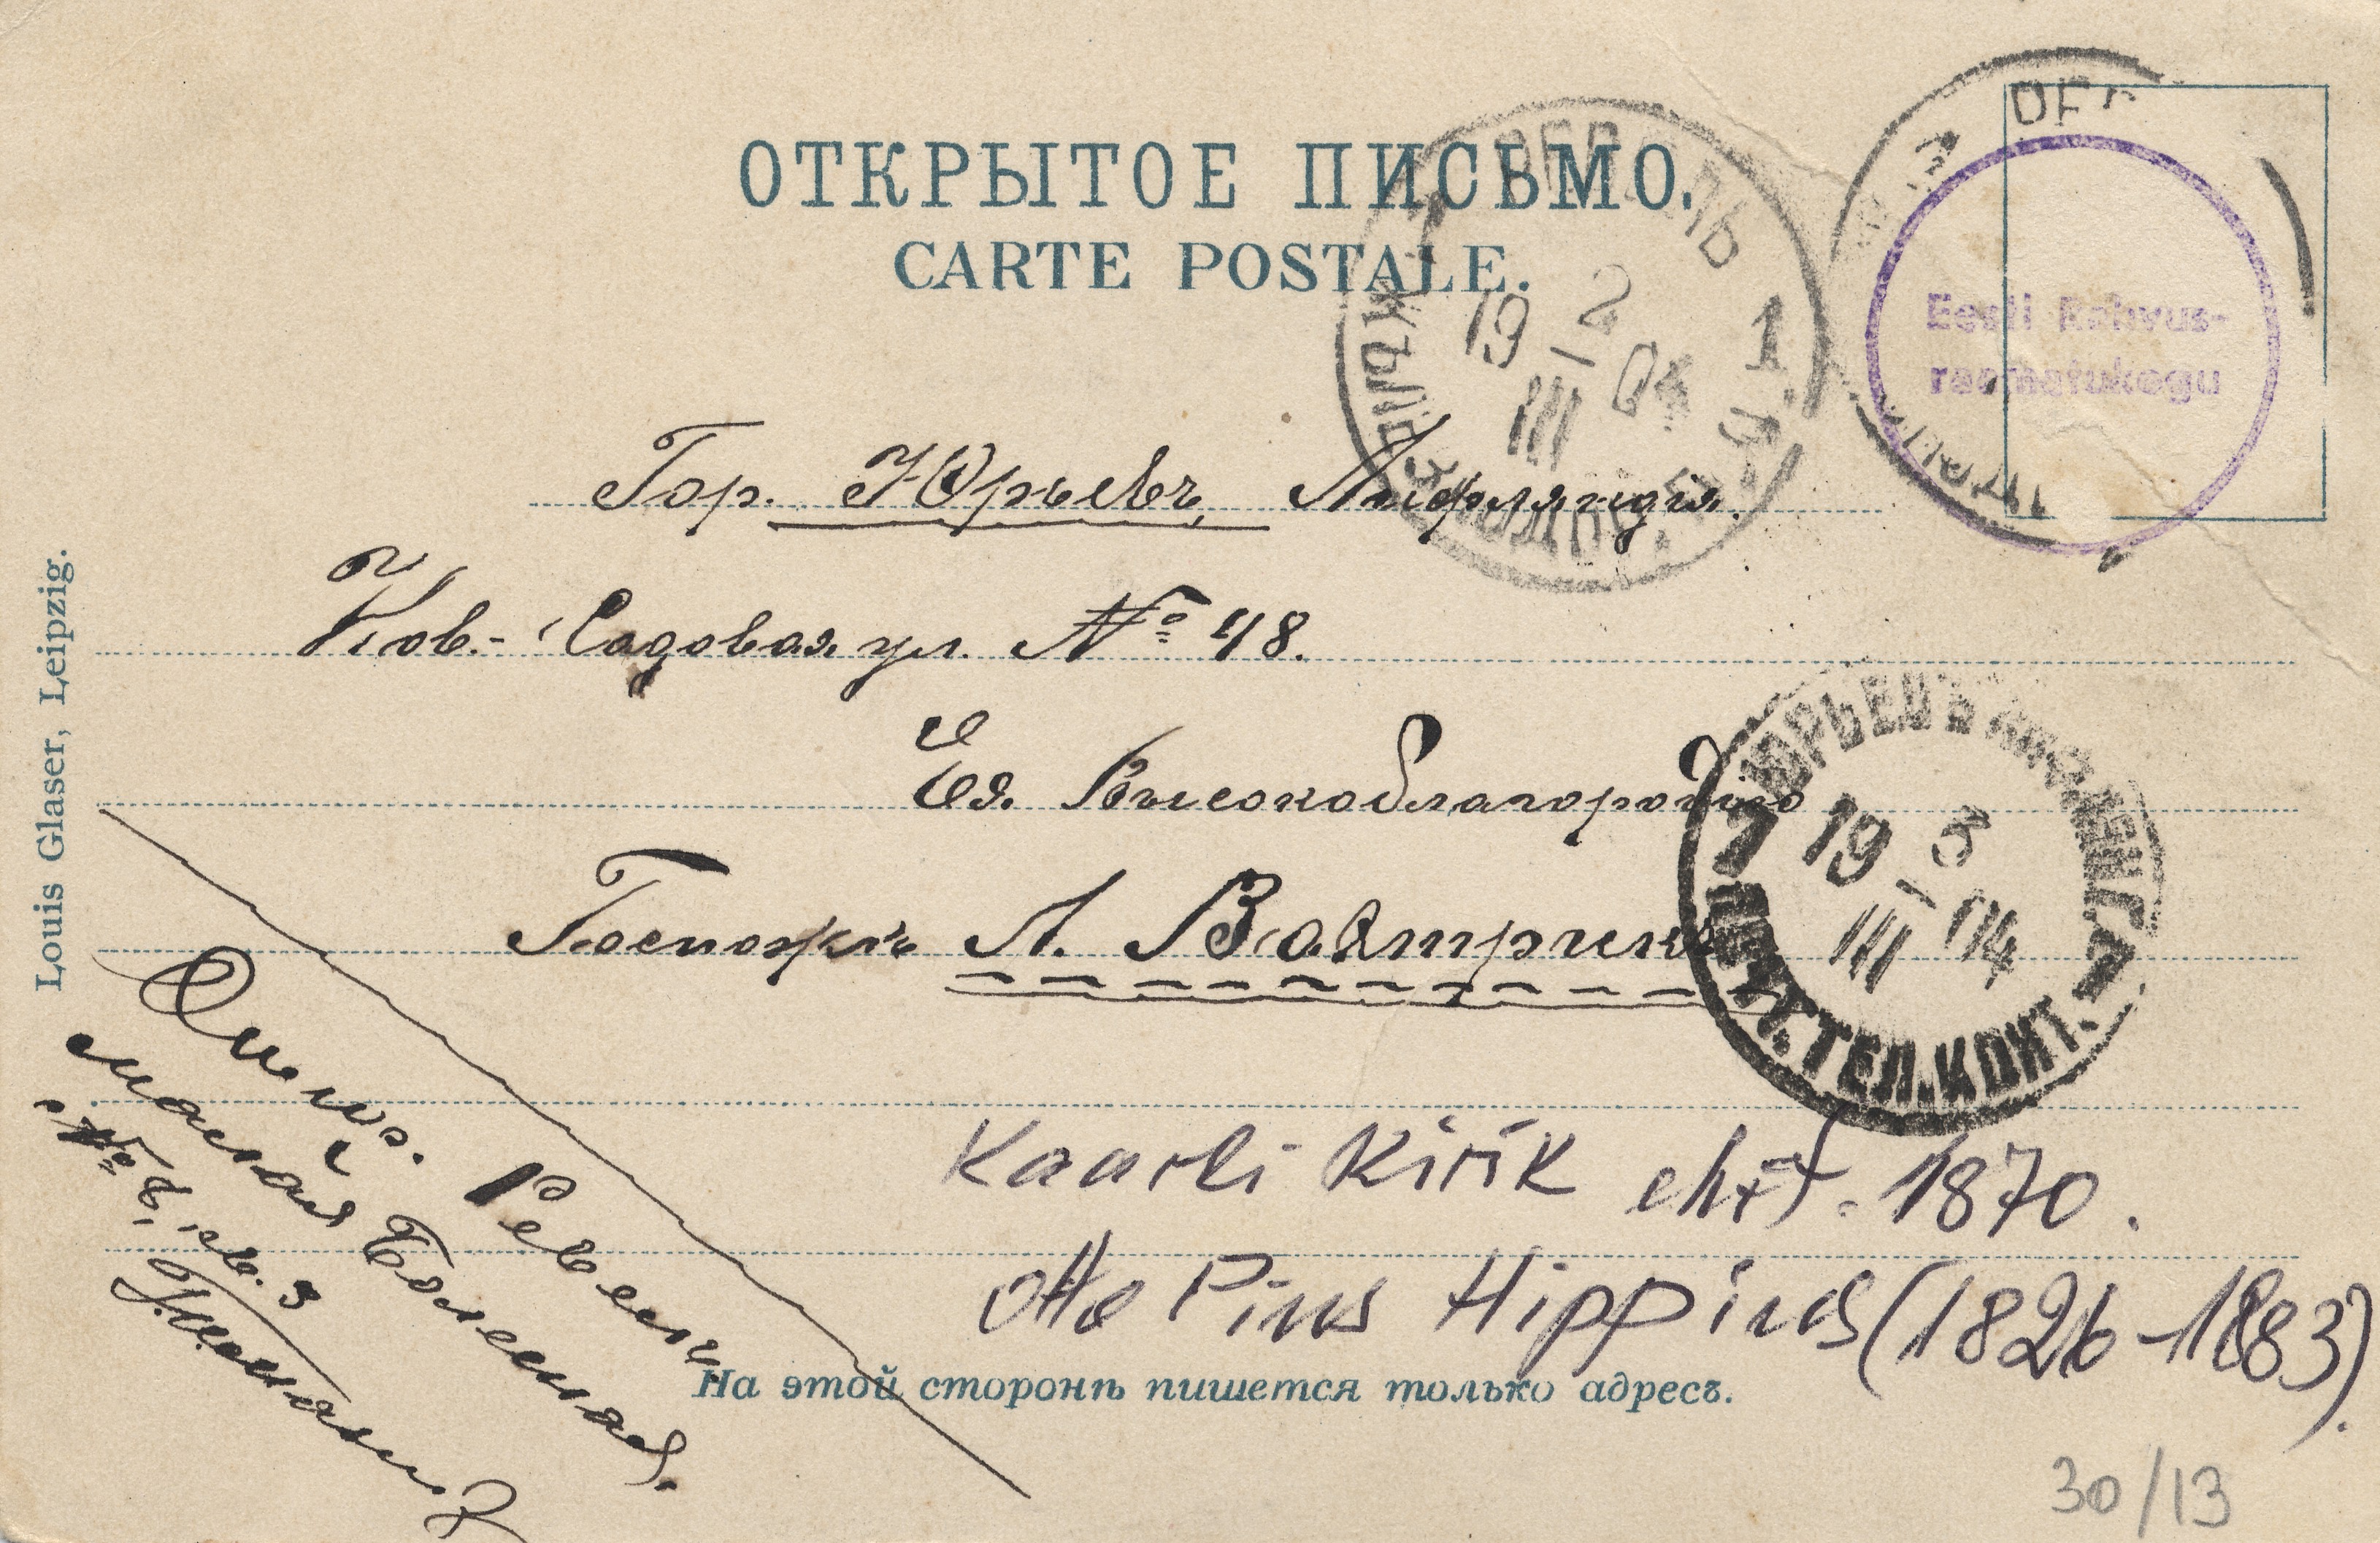 ОТКРЫТОЕ ПИСЬМО.
CARTE POSTALE.
РЕВЕЛЬ
19 2 III 04
1
Eesti Rahvus-
raamatukogu
Гор. Юрьевъ, Лифляндія.
Нов.-Садовая ул. № 48.
Ея Высокоблагородію
Госпожѣ Л.
ЮРЬЕВЪ ЛИФЛЯНД. Г.
19 3 III 04
ПОЧТ. ТЕЛ. КОНТ.
Louis Glaser, Leipzig.
Ревель
Малая
№ 6, кв. 3
Kaarli Kirik ehit. 1870.
Otto Pius Hippius (1826-1883).
На этой сторонѣ пишется только адресъ.
30/13